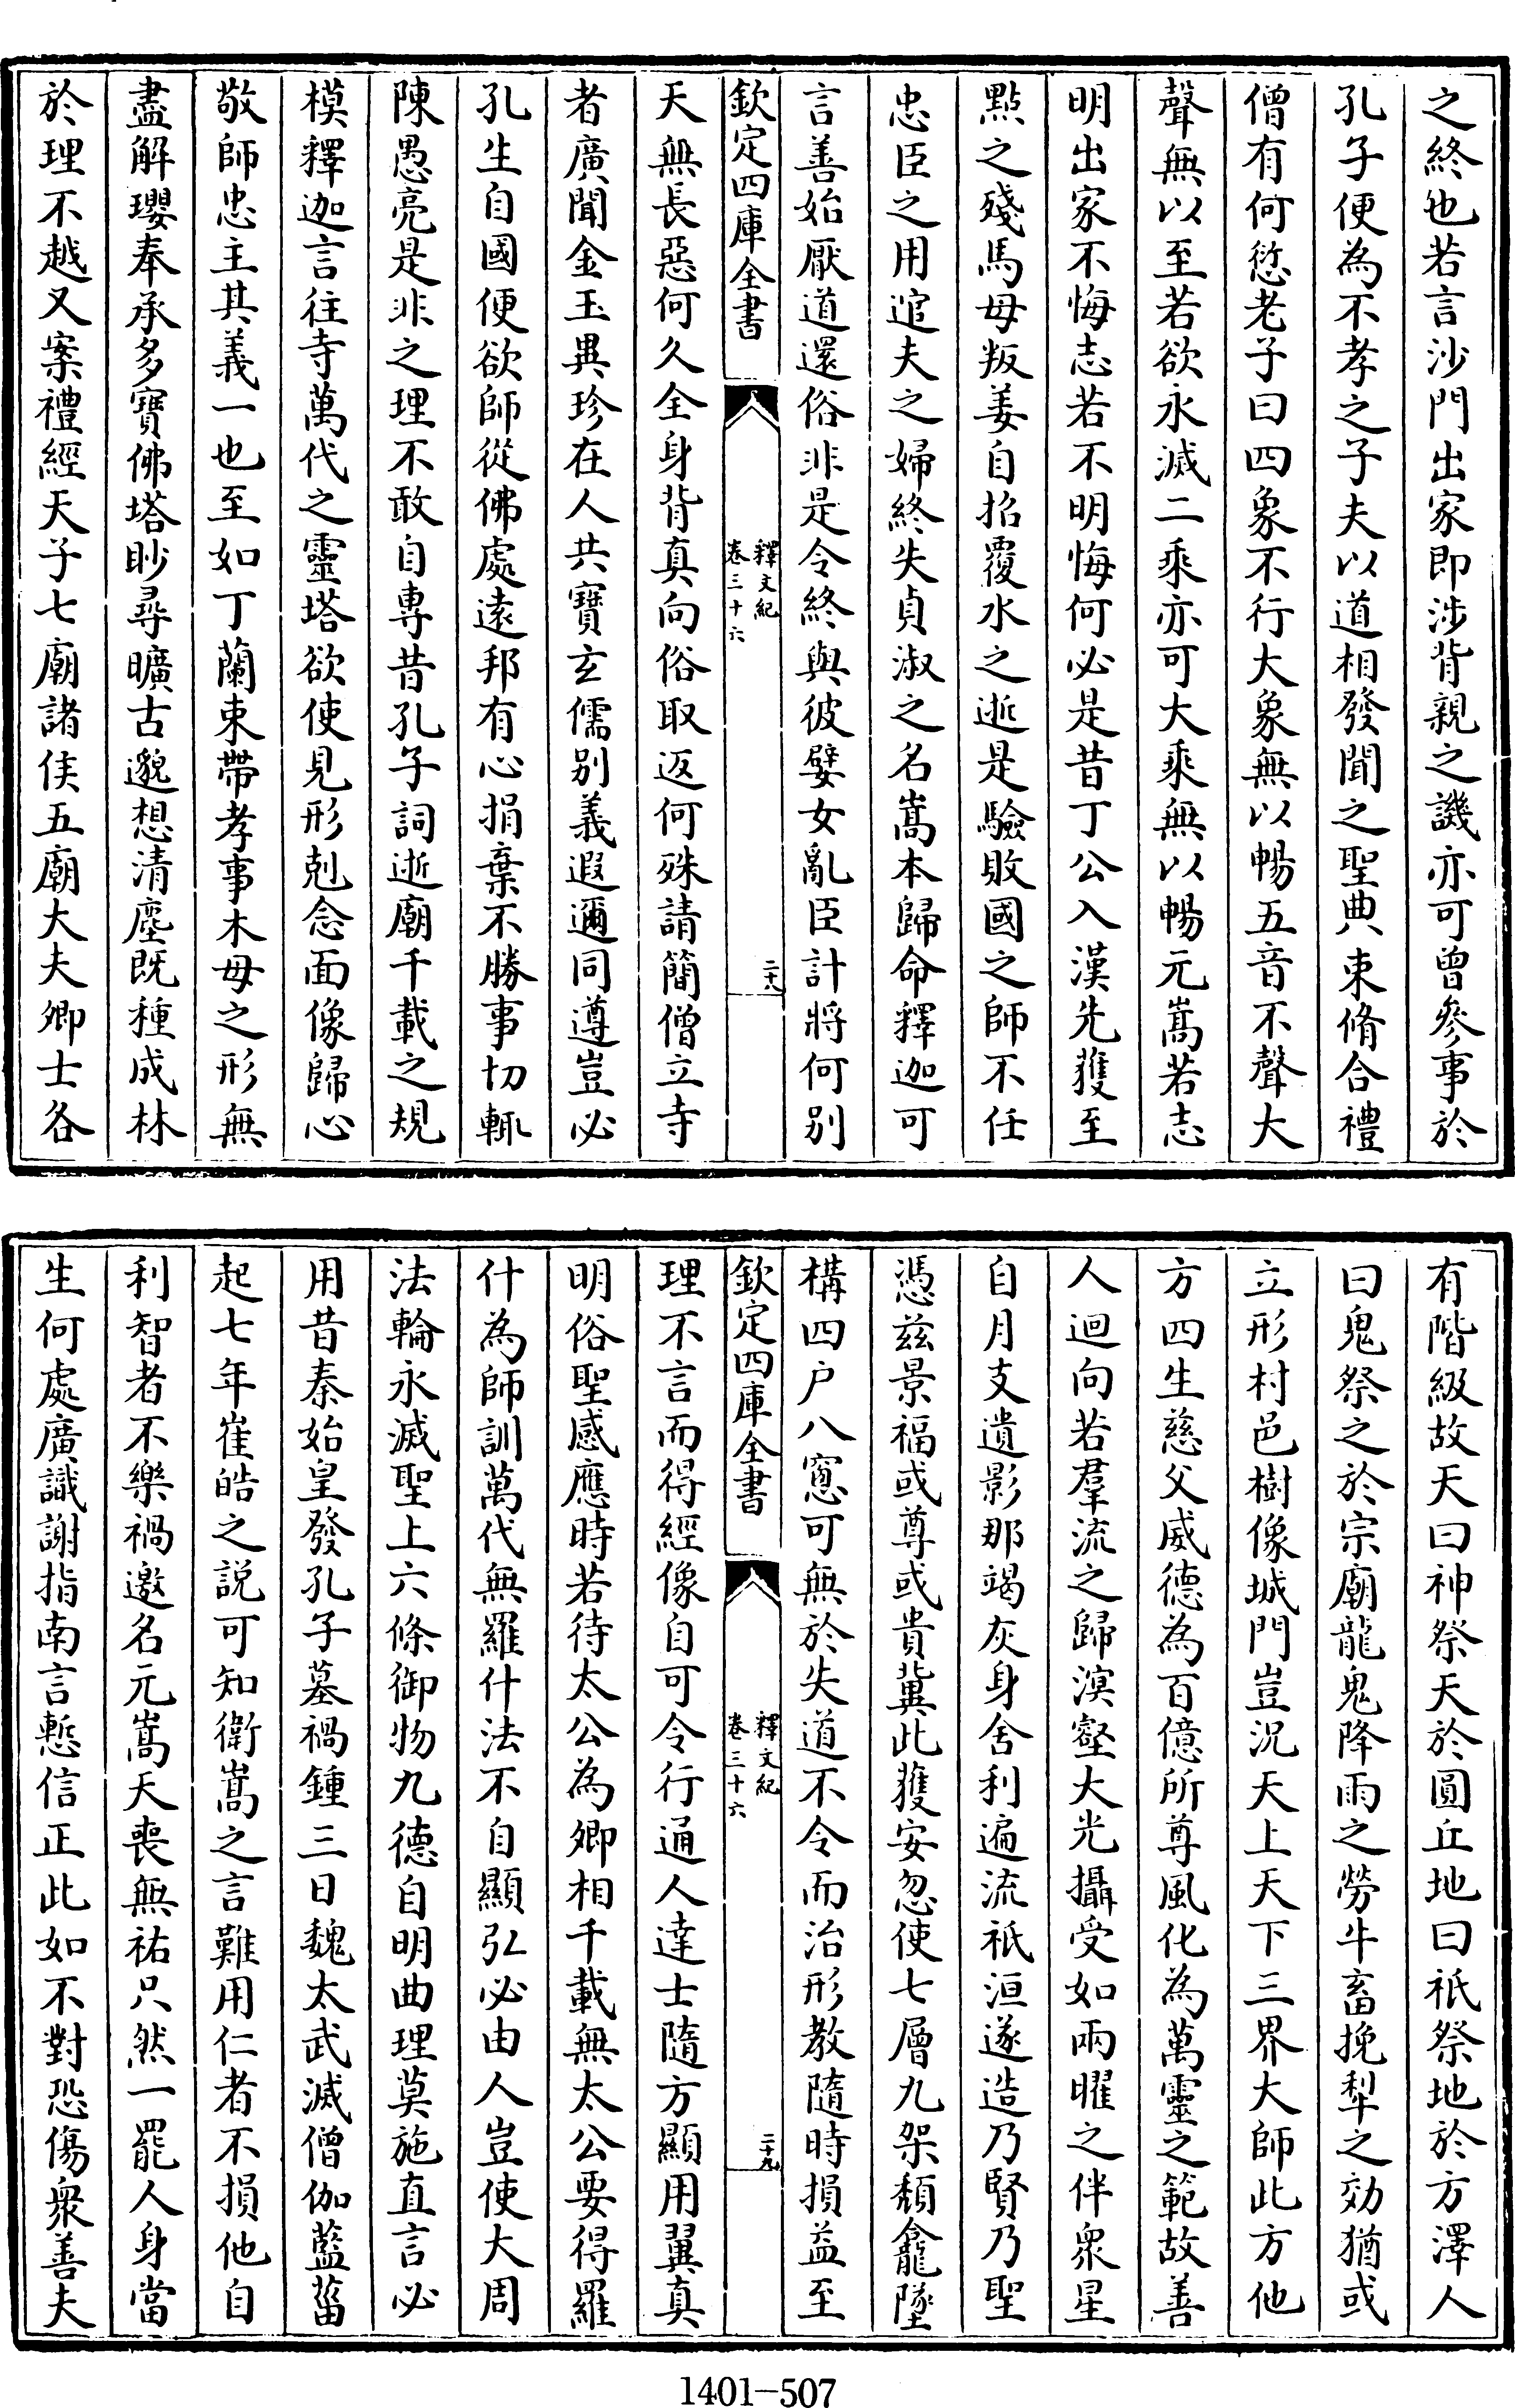 之終也若言沙門出家即涉背親之譏亦可曾參事於
孔子便為不孝之子夫以道相發聞之聖典束脩合禮
僧有何愆老子曰四象不行大象無以暢五音不聲大
聲無以至若欲永滅二乘亦可大乘無以暢元嵩若志
明出家不悔志若不明悔何必是昔丁公入漢先獲至
點之殘馬母叛姜自招覆水之逝是驗敗國之師不任
忠臣之用逭夫之婦終失貞淑之名嵩本歸命釋迦可
言善始厭道還俗非是令終與彼嬖女亂臣計將何别
欽定四庫全書
釋文紀
卷三十六
二十八
天無長惡何久全身背真向俗取返何殊請簡僧立寺
者廣聞金玉異珍在人共寶玄儒别義遐邇同遵豈必
孔生自國便欲師從佛處遠邦有心捐棄不勝事切輒
陳愚亮是非之理不敢自專昔孔子詞逝廟千載之規
模釋迦言往寺萬代之靈塔欲使見形剋念面像歸心
敬師忠主其義一也至如丁蘭束帶孝事木母之形無
盡解瓔奉承多寶佛塔眇尋曠古邈想清塵既種成林
於理不越又案禮經天子七廟諸侯五廟大夫卿士各
有階級故天曰神祭天於圓丘地曰祇祭地於方澤人
曰鬼祭之於宗廟龍鬼降雨之勞牛畜挽犁之効猶或
立形村邑樹像城門豈況天上天下三界大師此方他
方四生慈父威德為百億所尊風化為萬靈之範故善
人迴向若羣流之歸溟壑大光攝受如兩曜之伴衆星
自月支遺影那竭灰身舍利遍流祇洹遂造乃賢乃聖
憑兹景福或尊或貴冀此獲安忽使七層九架頹龕墜
構四户八窻可無於失道不令而治形教隨時損益至
欽定四庫全書
釋文紀
卷三十六
二十九
理不言而得經像自可令行通人達士隨方顯用翼真
明俗聖感應時若待太公為卿相千載無太公要得羅
什為師訓萬代無羅什法不自顯弘必由人豈使大周
法輪永滅聖上六條御物九德自明曲理莫施直言必
用昔秦始皇發孔子墓禍鍾三日魏太武滅僧伽藍菑
起七年崔皓之説可知衛嵩之言難用仁者不損他自
利智者不樂禍邀名元嵩天喪無祐只然一罷人身當
生何處廣識謝指南言慙信正此如不對恐傷衆善夫
1401-507